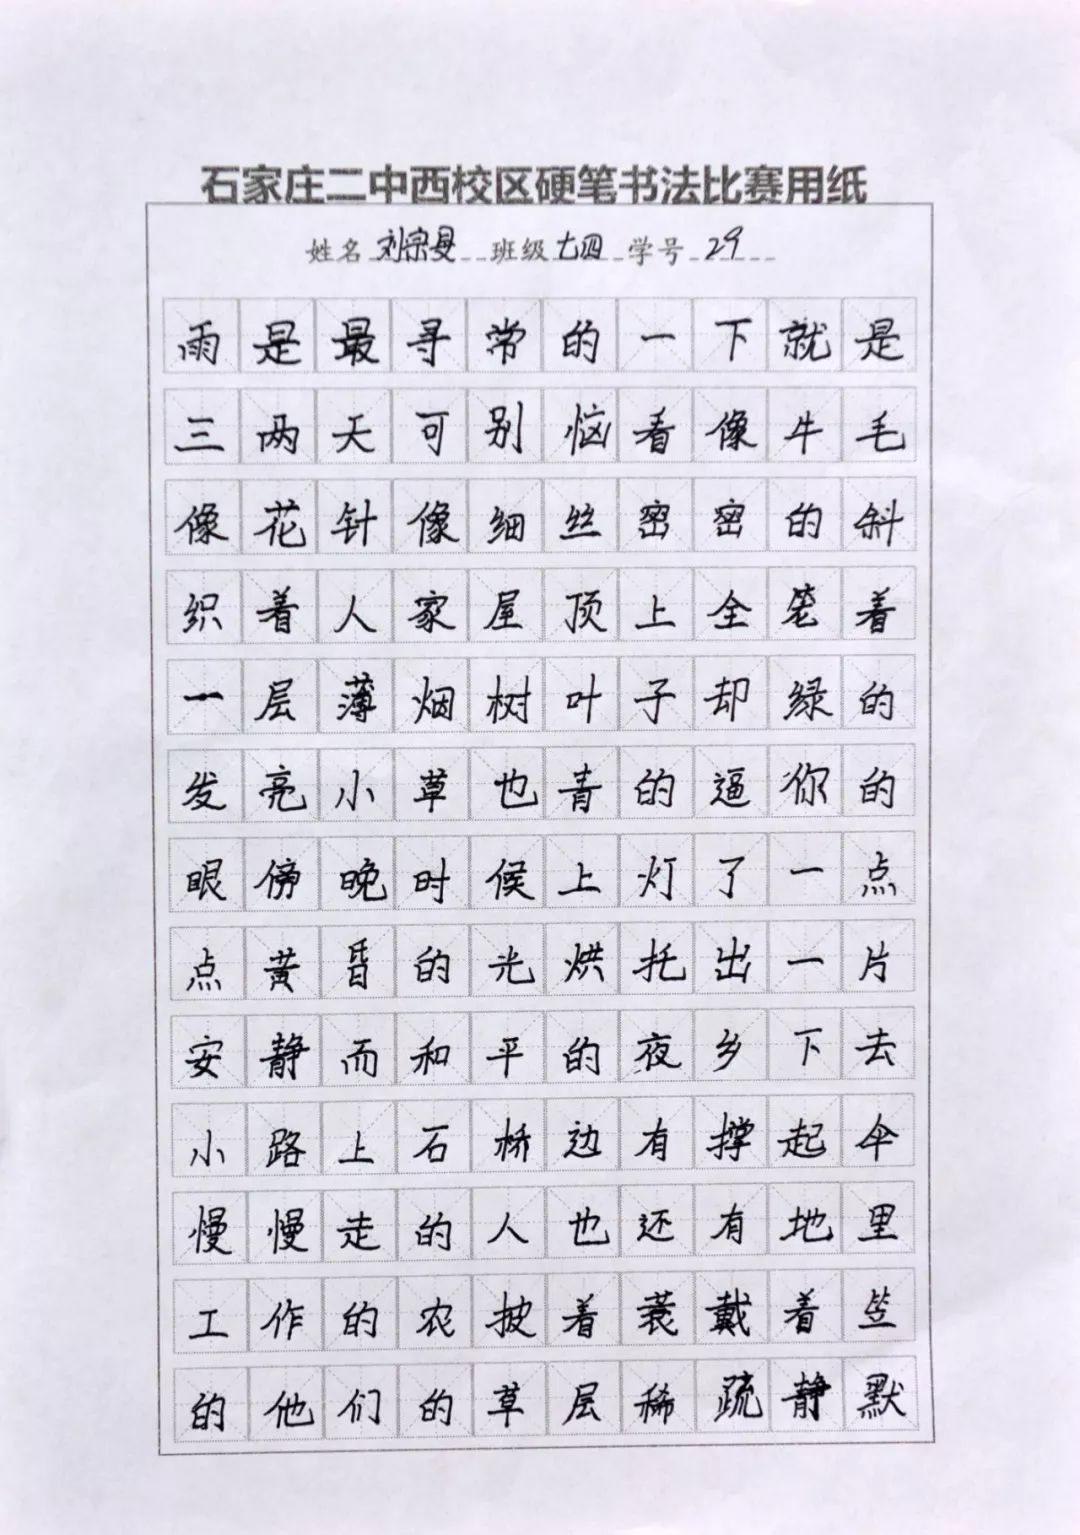 石家庄二中西校区硬笔书法比赛用纸
姓名 刘宗昱 班级 七四 学号 29
雨是最寻常的一下就是
三两天可别恼看像牛毛
像花针像细丝密密的斜
织着人家屋顶上全笼着
一层薄烟树叶子却绿的
发亮小草也青的逼你的
眼傍晚时候上灯了一点
点黄昏的光烘托出一片
安静而和平的夜乡下去
小路上石桥边有撑起伞
慢慢走的人也还有地里
工作的农披着蓑戴着笠
的他们的草层稀疏静默